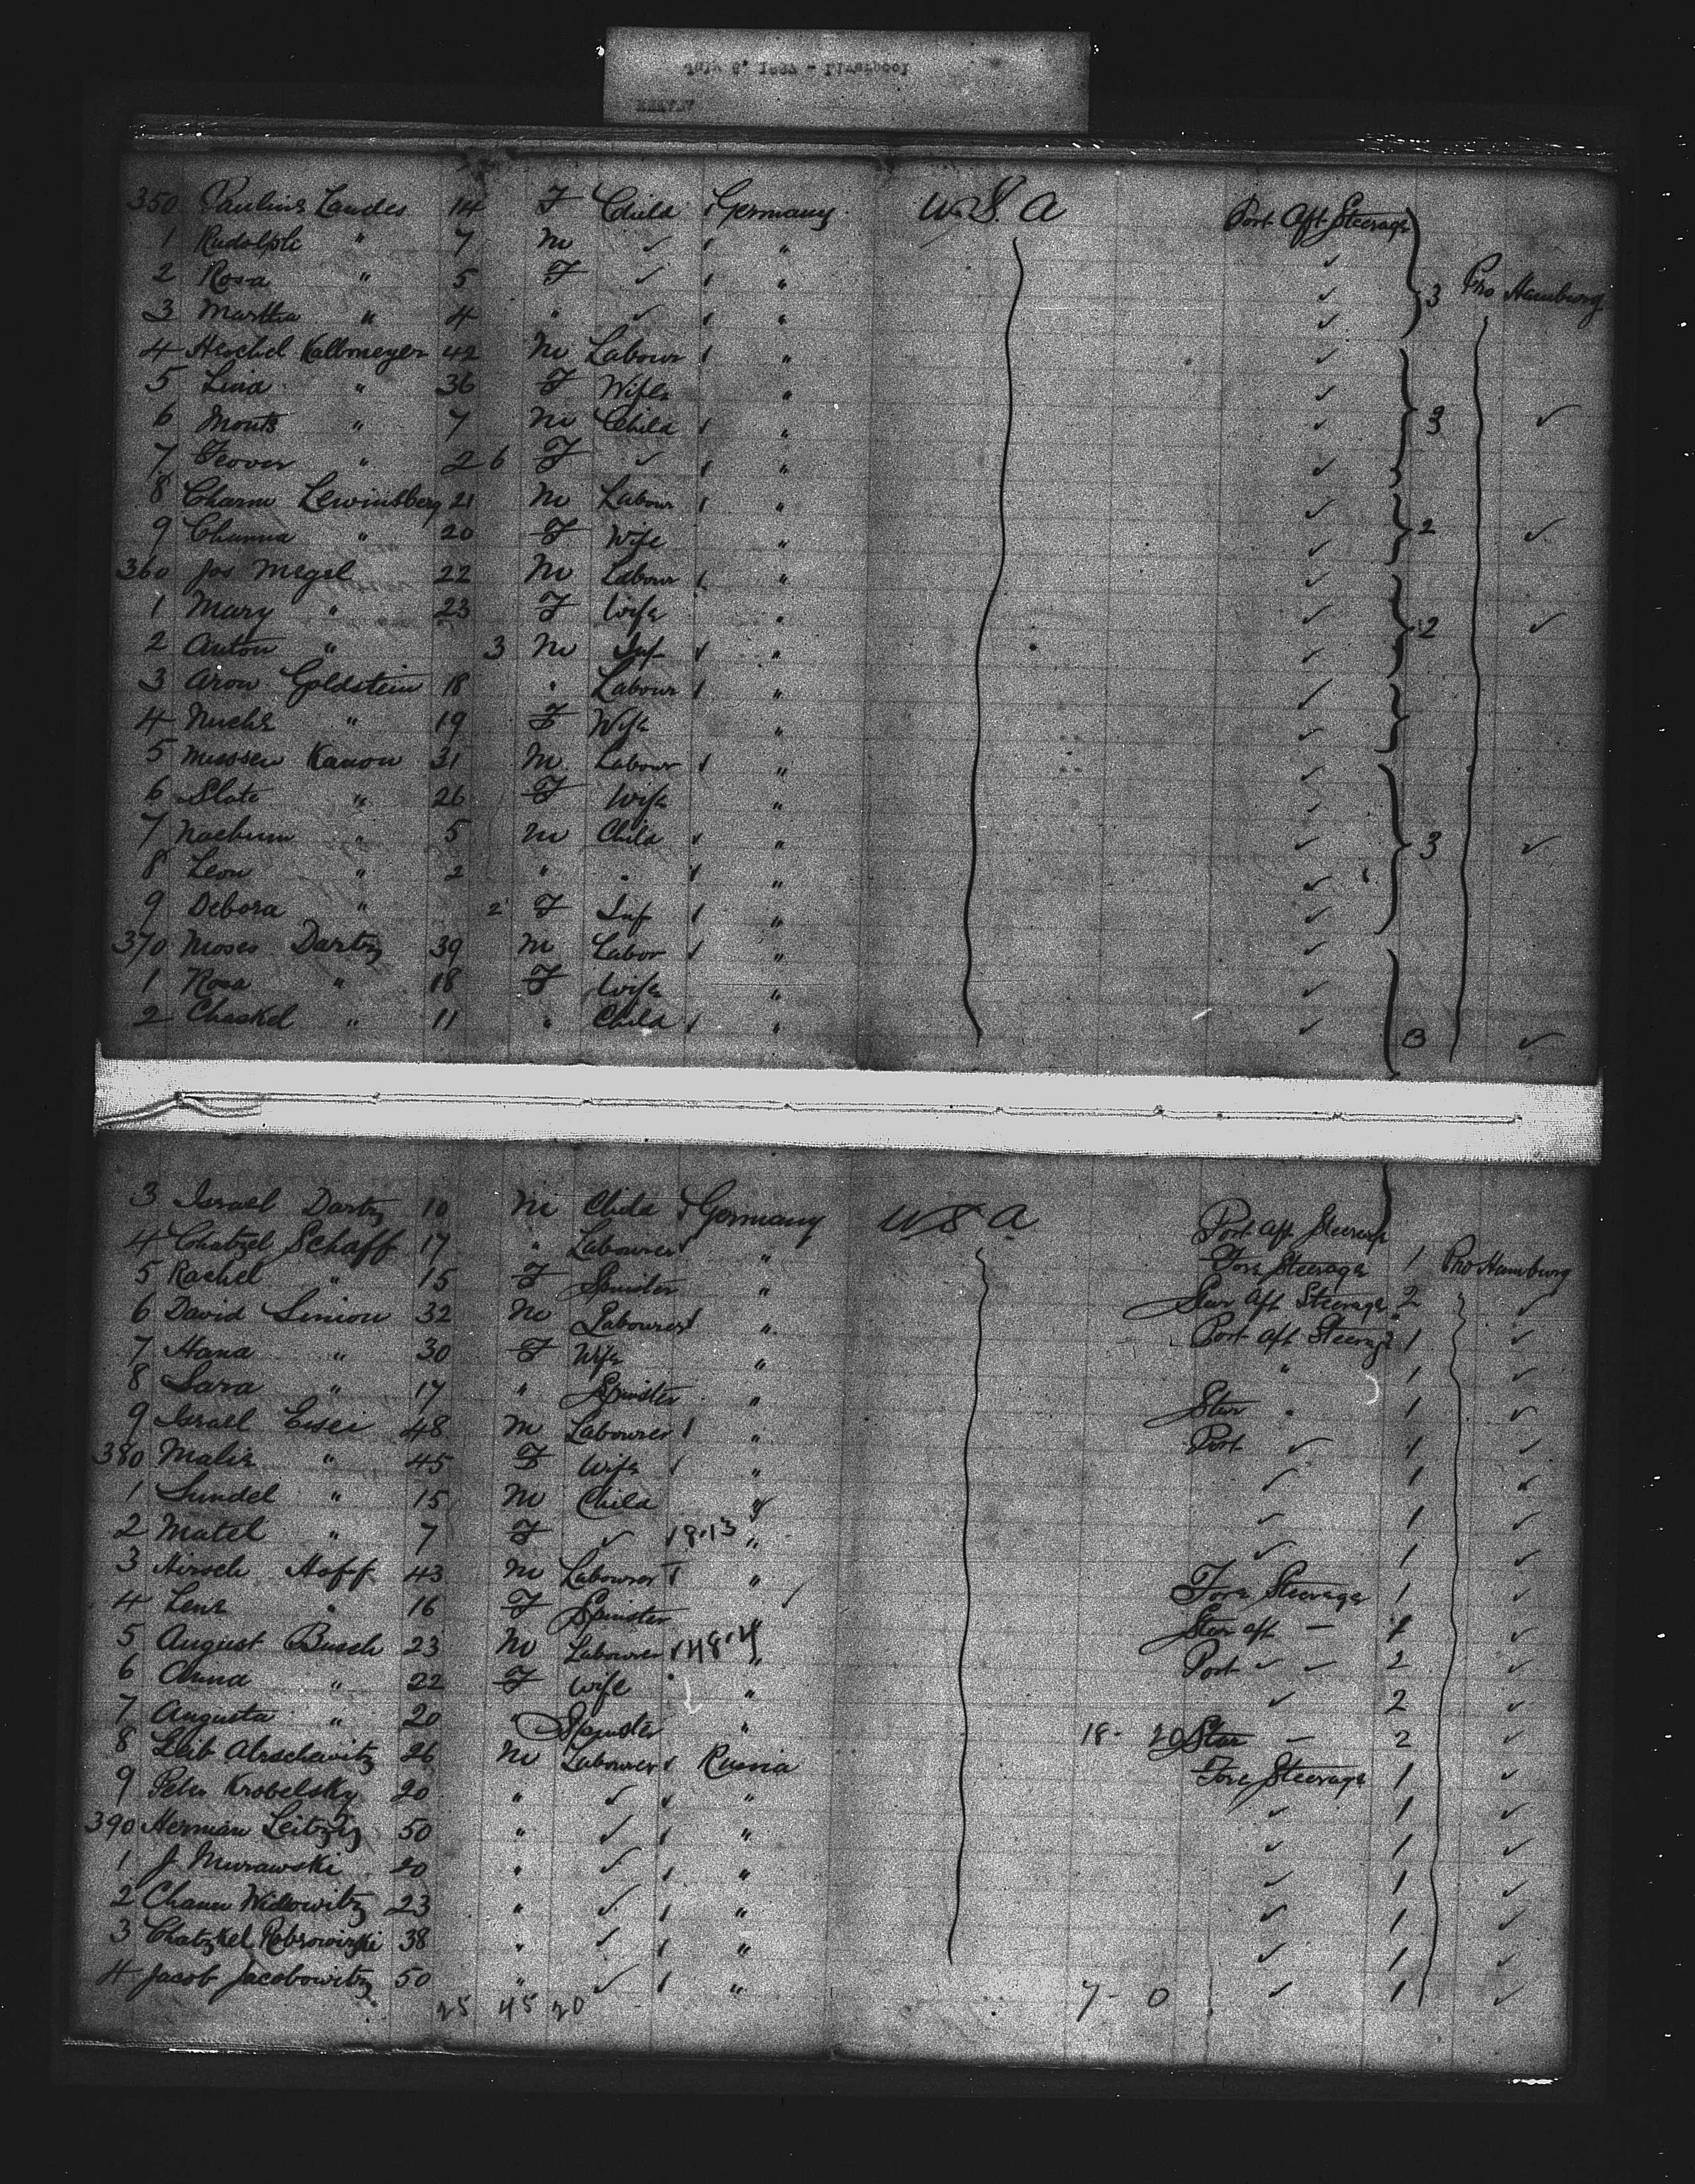 July 6, 1887 - Liverpool
350 Pauline Landes 14 F Child Germany U.S.A Port Aft Steerage
1 Rudolph " 7 M ✓ "
2 Rosa " 5 F ✓ " 3 Pro Hamburg
3 Martha " 4 " ✓ "
4 Heschel Kallmeyer 42 M Labour "
5 Lina " 36 F Wife "
6 Monts " 7 M Child " 3
7 " 2 6 F ✓ "
8 Charm Lewinsberg 21 M Labour "
9 Channa " 20 F Wife " 2
360 Jos Megel 22 M Labour "
1 Mary " 23 F Wife " 2
2 Anton " 3 M Inf "
3 Aron Goldstein 18 " Labour "
4 " 19 F Wife "
5 Kanon 31 M Labour "
6 Slate " 26 F Wife "
7 Nachum " 5 M Child " 3
8 Leon " 2 " " "
9 Debora " 2 F Inf "
370 Moses Dartz 39 M Labor "
1 Rosa " 18 F Wife "
2 Chaskel " 11 " Child " 3
3 Israel Dartz 10 M Child Germany U S A Port Aft Steerage
4 Chatzel Schaff 17 " Labourer " Fore Steerage 1 Pro Hamburg
5 Rachel " 15 F Spinster " Star Aft Steerage 2
6 David Simon 32 M Labourer " Port Aft Steerage 1
7 Hana " 30 F Wife " " 1
8 Sara " 17 " Spinster " Star " 1
9 Israel 48 M Labourer " Port ✓ 1
380 Malie " 45 F Wife " ✓ 1
1 Sundel " 15 M Child " ✓ 1
2 Matel " 7 F ✓ 8·13 " ✓ 1
3 Hirsch Hoff 43 M Labourer " Fore Steerage 1
4 Lene " 16 F Spinster " Star aft —
5 August Busch 23 M Labourer " Port ✓ ✓ 2
6 Anna " 22 F Wife " ✓ 2
7 Augusta " 20 " Spinster " 18 - 20 Star — 2
8 Leib Abschewitz 26 M Labourer Russia Fore Steerage 1
9 Peter Krobelsky 20 " ✓ " ✓ 1
390 Herman 50 " ✓ " ✓ 1
1 J Murawski 20 " ✓ " ✓ 1
2 Widowitz 23 " ✓ " ✓ 1
3 Chatzkel 38 " ✓ " ✓ 1
4 Jacob Jacobowitz 50 " ✓ " 7 - 0 ✓ 1
25 45 20